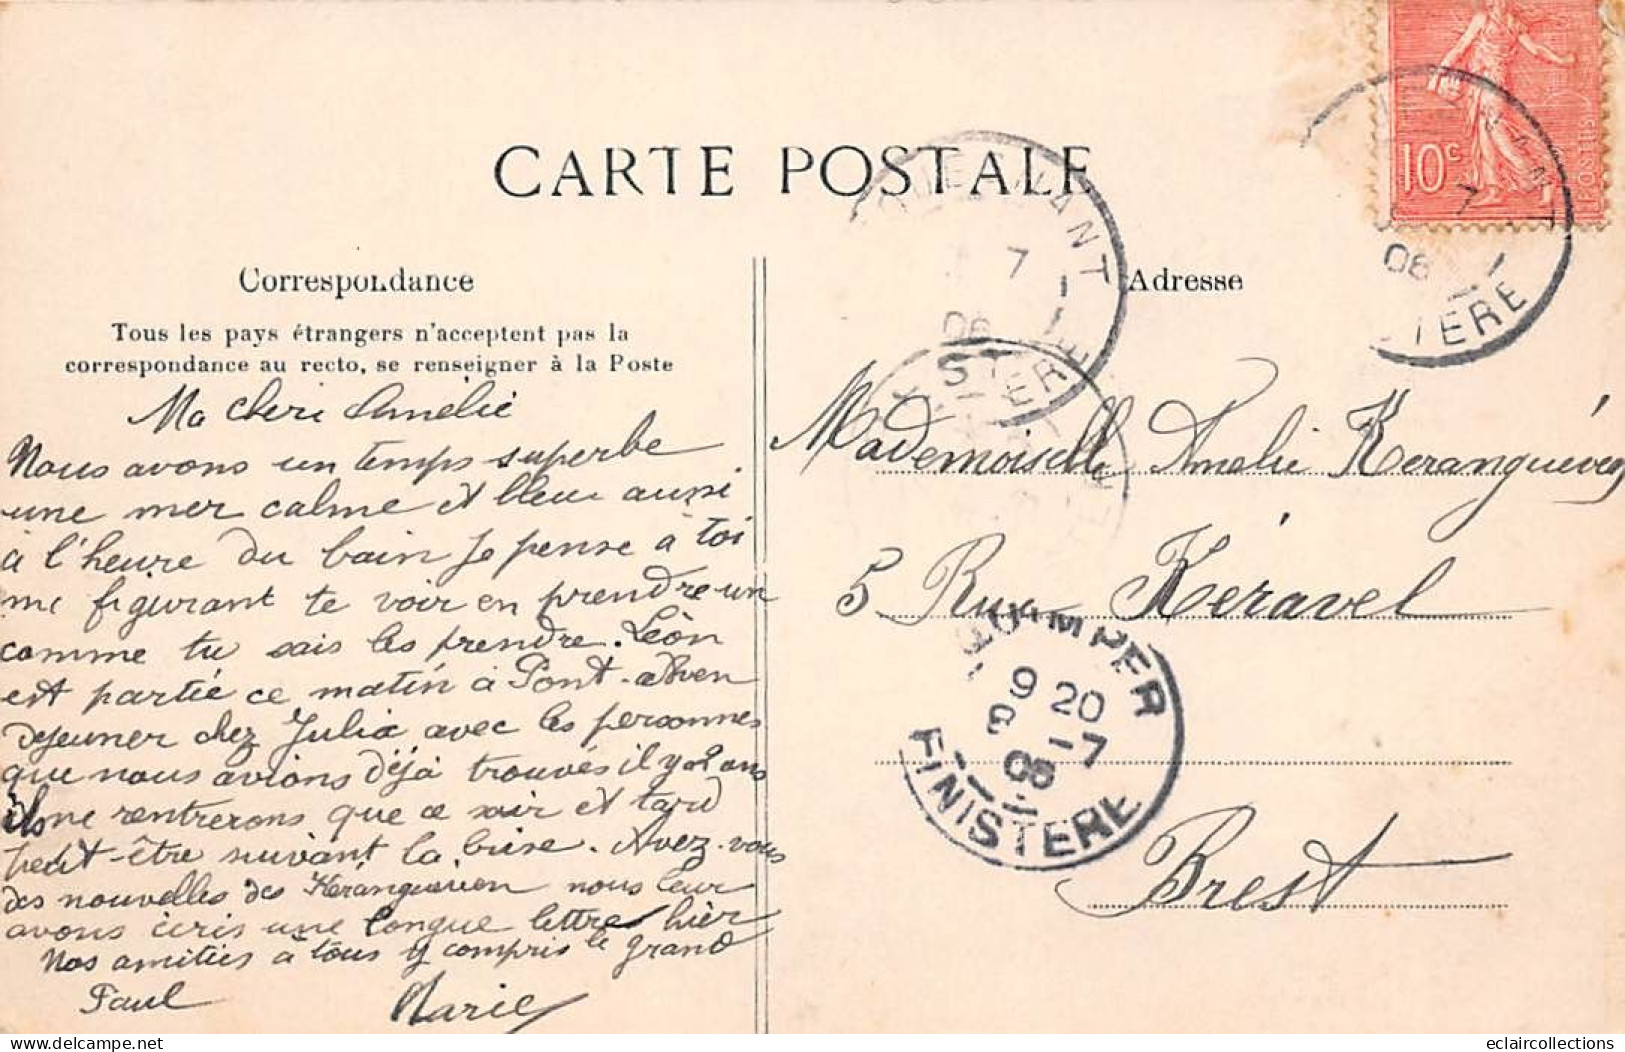 CARTE POSTALE
Correspondance
Tous les pays étrangers n'acceptent pas la
correspondance au recto, se renseigner à la Poste
Ma cheri Amélie
Nous avons un temps superbe
une mer calme et bleu aussi
à l'heure du bain je pense a toi
me figurant te voir en prendre un
comme tu sais les prendre. Léon
est partie ce matin à Pont-Aven
dejeuner chez Julia avec les personnes
que nous avions déjà trouvés il y a 2 ans
Ils ne rentrerons que ce soir et tard
peut-être suivant la brise. Avez-vous
des nouvelles des Kerangueven nous leur
avons écris une longue lettre hier
Nos amitiés à tous y compris le grand
Paul Marie
10c
POSTES
7
06
TERE
7
06
EST
QUIMPER
9 20
6 -7
06
FINISTERE
Adresse
Mademoiselle Amelie Keranguéven
5 Rue Kéravel
Brest
eclaircollections